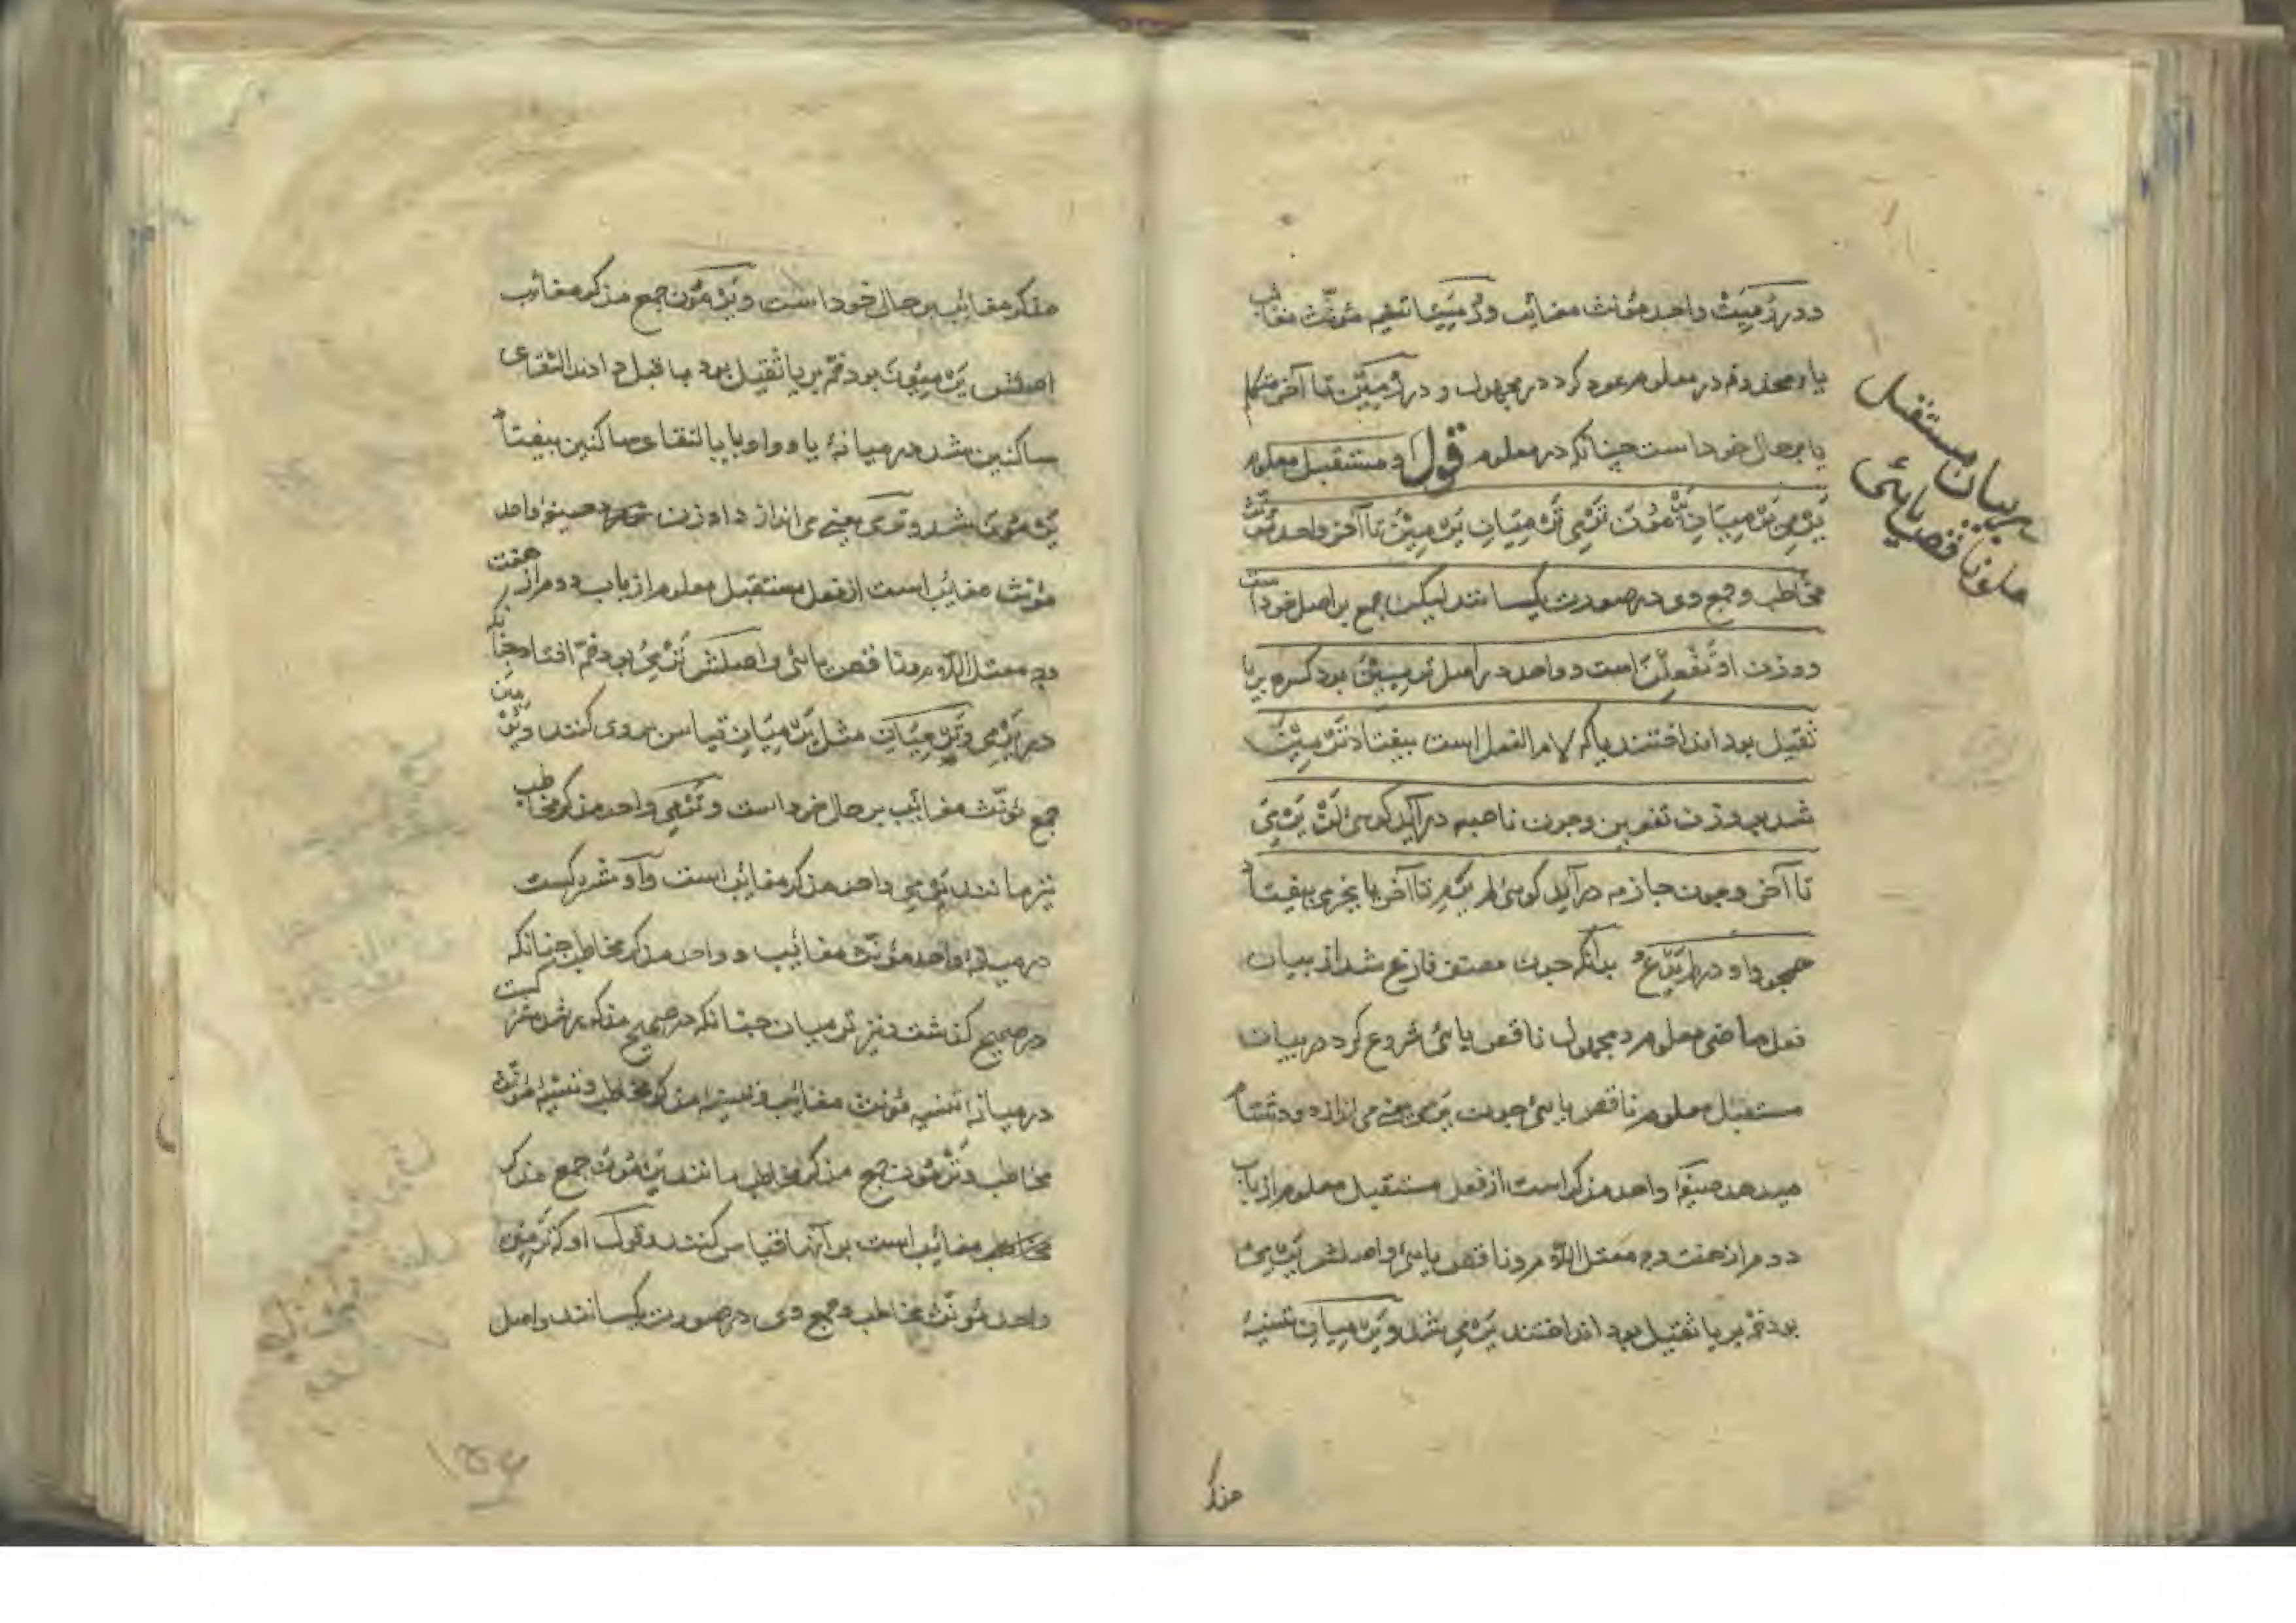 و در رُمِیَتْ واحد مؤنث مغائب و رُمِیَتَا تثنیه مؤنث مغائب
یا محذوفه در معلوم عود کرد در مجهول و در رُمِیْنَ تا آخر متکلم
یا بر حال خود است چنانکه در معلوم قوله و مستقبل معلوم
یَرْمِی یَرْمِیَانِ یَرْمُوْنَ تَرْمِی تَرْمِیَانِ یَرْمِیْنَ تا آخر واحد مؤنث
مخاطب و جمع وی در صورت یکسانند لیکن جمع بر اصل خود است
و وزن او تَفْعِلْنَ است و واحد در اصل تَرْمِیِیْنَ بود کسره بر یا
ثقیل بود انداختند یا که لام الفعل است بیفتاد تَرْمِیْنَ
شد بر وزن تفعین و چون ناصبه درآید گوئی لَنْ یَرْمِیَ
تا آخر و چون جازمه درآید گوئی لم یَرْمِ تا آخر یا بجزمی بیفتاد
همچو واو در لم یَدْعُ بدانکه چون مصنف فارغ شد از بیان
فعل ماضی معلوم و مجهول ناقص یائی شروع کرد در بیان
مستقبل معلوم ناقص یائی چون یَرْمِی یعنی می اندازد
میدهد صیغهٔ واحد مذکر است از فعل مستقبل معلوم از باب
دوم از هفت وجه معتل اللام و ناقص یائی و اصلش یَرْمِیُ
بود ضمّه بر یا ثقیل بود انداختند یَرْمِی شد و یَرْمِیَانِ تثنیهٔ
مذکر
بیان مستقبل
معلوم ناقص یائی
مذکر مغائب بر حال خود است و یَرْمُوْنَ جمع مذکر مغائب
اصلش یَرْمِیُوْنَ بود ضمّه بر یا ثقیل بود بما قبل دادند التقای
ساکنین شد در میانهٔ یا و واو یا بالتقای ساکنین بیفتاد
یَرْمُوْنَ شد و تَرْمِی یعنی می اندازد او زن صیغهٔ واحد
مؤنث مغائب است از فعل مستقبل معلوم از باب دوم از هفت
وجه معتل اللام و ناقص یائی و اصلش تَرْمِیُ بود ضمّه افتاد چنانکه
در یَرْمِی و تَرْمِیَانِ مثل یَرْمِیَانِ قیاس بر وی کنند و یَرْمِیْنَ
جمع مؤنث مغائب بر حال خود است و تَرْمِی واحد مذکر مخاطب
نیز مانند یَرْمِی واحد مذکر مغائب است و او مشترکست
در میان واحد مؤنث مغائب و واحد مذکر مخاطب چنانکه
در صحیح گذشت و نیز تَرْمِیَانِ چنانکه در صحیح مذکور شد مشترکست
در میانهٔ تثنیهٔ مؤنث مغائب و تثنیهٔ مذکر مخاطب و تثنیهٔ مؤنث
مخاطب و تَرْمُوْنَ جمع مذکر مخاطب مانند یَرْمُوْنَ جمع مذکر
مغائب است بر آنها قیاس کنند و قوله او که تَرْمِیْنَ
واحد مؤنث مخاطب و جمع وی در صورت یکسانند و اصل